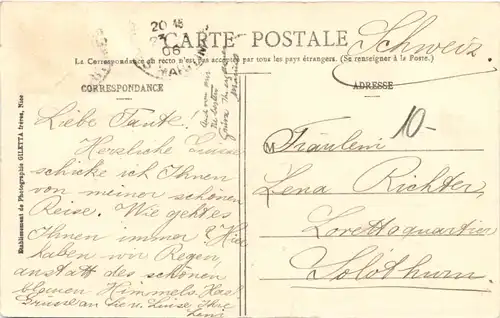 CARTE POSTALE
La Correspondance au recto n'est pas acceptée par tous les pays étrangers. (Se renseigner à la Poste.)
CORRESPONDANCE
ADRESSE
Etablissement de Photographie GILETTA frères, Nice
20
06
Schweiz.
10-
Liebe Tante!
Herzliche Grüsse
schicke ich Ihnen
von meiner schönen
Reise. Wie geht es
Ihnen immer? Hier
haben wir Regen,
anstatt des schönen
blauen Himmels.
Grüsse an Luise Ihre
M
Fräulein
Lena Richter,
Lorettoquartier
Solothurn.